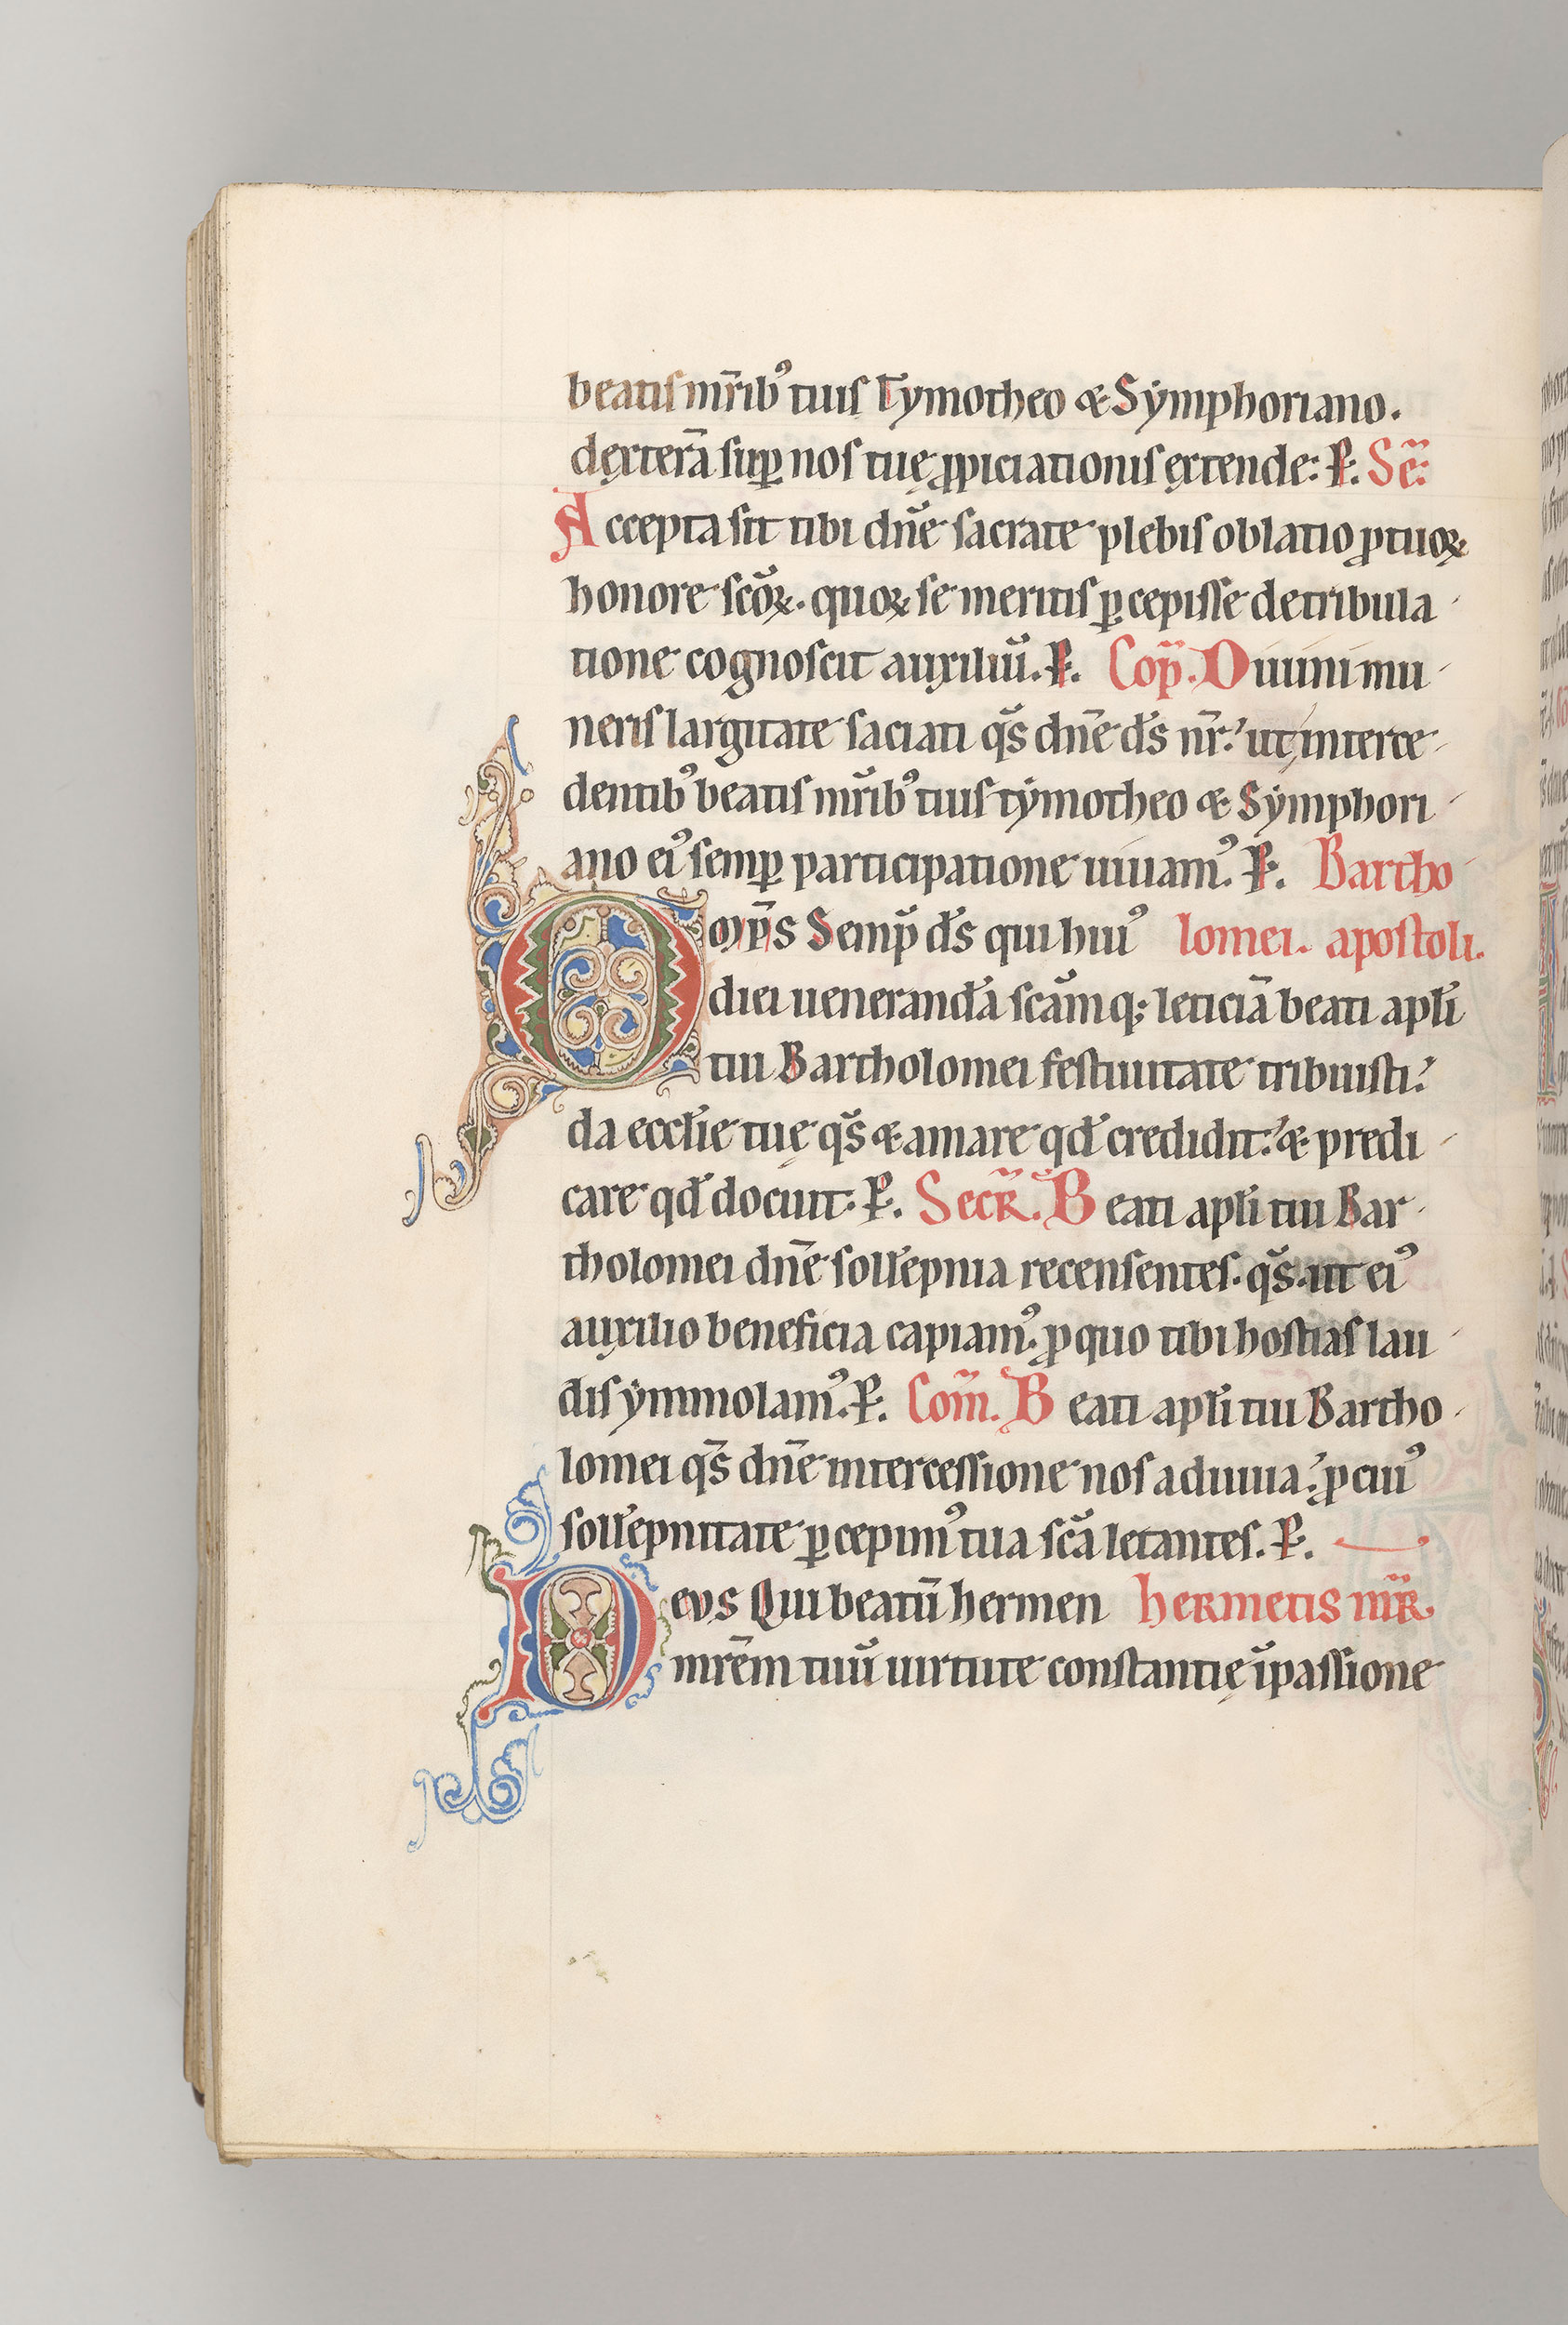 beatis mr̄ibꝰ tuis Tymotheo & Symphoriano.
dęxterā sup̲ nos tuę ꝓpiciationis ęxtende: P̵. Sē:
Accepta sit tibi dn̄e sacrate plebis oblatio ꝓ tuoꝝ
honore sc̄oꝝ. quoꝝ se meritis p̲cepisse de tribula
tione cognoscit auxiliū. P̵. Cop̄. Diuini mu
neris largitate saciati qs̄ dn̄e ds̄ nr̄: ut interce
dentibꝰ beatis mr̄ibꝰ tuis tymotheo & Symphori
ano eiꝰ semp̲ participatione uiuamꝰ. P̵. Bartho
Omp̄s Semp̄ ds̄ qui huiꝰ lomei. apostoli.
diei uenerandā scām q; leticiā beati apl̄i
tui Bartholomei festiuitate tribuisti:
da eccl̄ie tuę qs̄ & amare qd̄ credidit: & predi
care qd̄ docuit. P̵. Secr̄. Beati apl̄i tui Bar
tholomei dn̄e soll̄epnia recensentes. qs̄. ut eiꝰ
auxilio beneficia capiamꝰ. ꝓ quo tibi hostias lau
dis ymmolamꝰ. P̵. Com̄. Beati apl̄i tui Bartho
lomei qs̄ dn̄e intercessione nos adiuua: ꝓ cuiꝰ
soll̄epnitate p̲cepimꝰ tua sc̄a letantes. P̵.
Deus Qui beatū hermen hermetis mr̄
mrēm tuū uirtute constantię ī passione